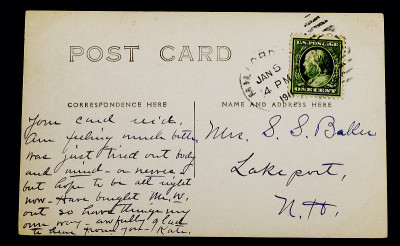 POST CARD
MILFORD
JAN 5
4 PM
191
U.S. POSTAGE
ONE CENT
CORRESPONDENCE HERE
NAME AND ADDRESS HERE
Your card rec'd.
Am feeling much better
was just tired out body
and mind - or nerves -
but hope to be all right
now - Have bought Mr. W.
out so have things my
own way - awfully glad
to hear from you - Kate.
Mrs. S. S. Baller
Lakeport,
N.H.